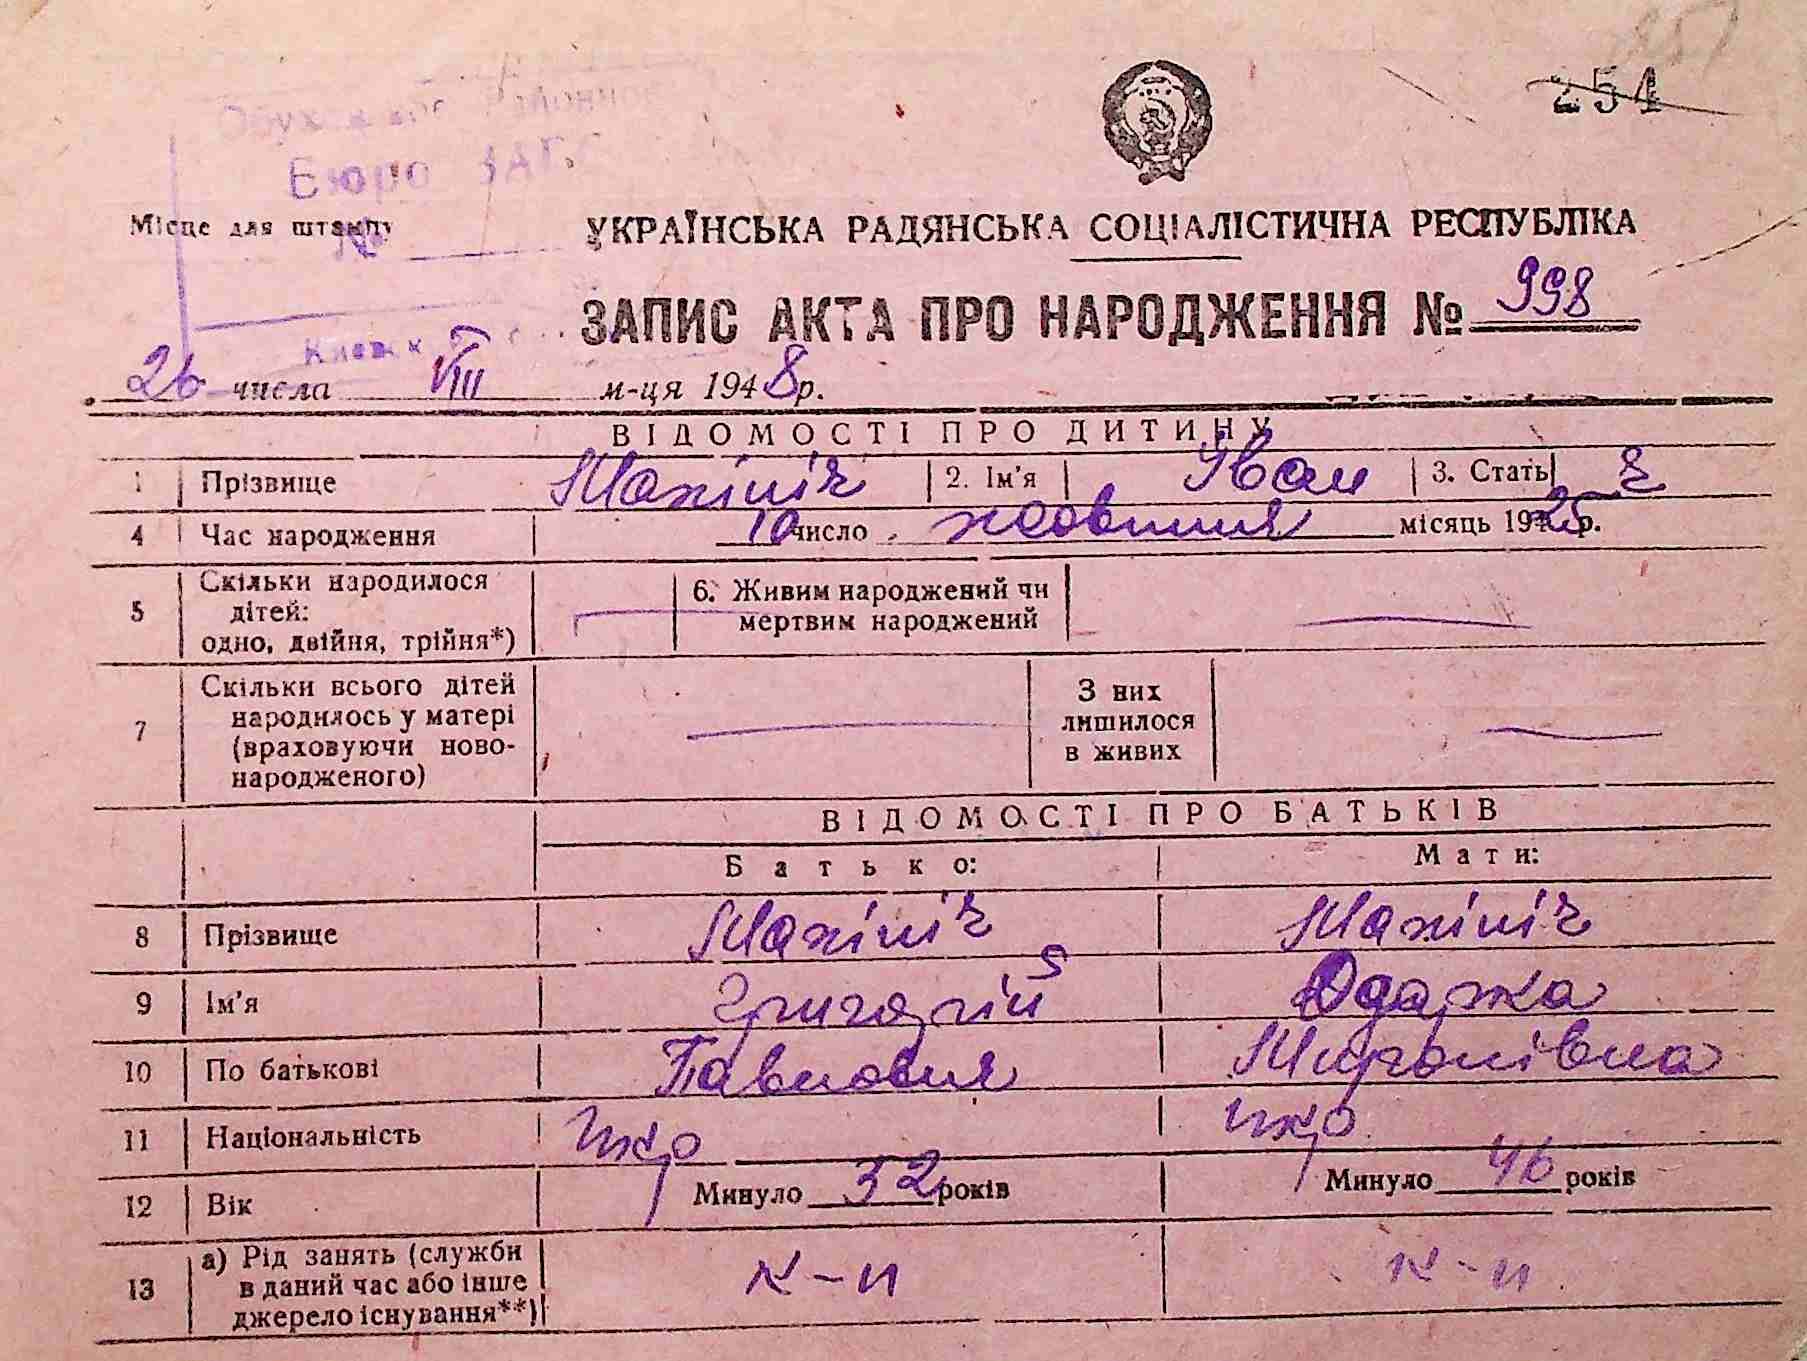 254
Бюро ЗАГС
Місце для штампу
№
УКРАЇНСЬКА РАДЯНСЬКА СОЦІАЛІСТИЧНА РЕСПУБЛІКА
ЗАПИС АКТА ПРО НАРОДЖЕННЯ № 998
26 числа VIII м-ця 1948 р.
ВІДОМОСТІ ПРО ДИТИНУ
1 Прізвище Махініч 2. Ім'я Іван 3. Стать ч
4 Час народження 10 число жовтня місяць 1925 р.
5 Скільки народилося дітей: одно, двійня, трійня*) 6. Живим народжений чи мертвим народжений
7 Скільки всього дітей народилось у матері (враховуючи ново-народженого) З них лишилося в живих
ВІДОМОСТІ ПРО БАТЬКІВ
Батько: Мати:
8 Прізвище Махініч Махініч
9 Ім'я Григорій Одарка
10 По батькові Павлович Миронівна
11 Національність укр укр
12 Вік Минуло 32 років Минуло 46 років
13 а) Рід занять (служби в даний час або інше джерело існування**) к-п к-п